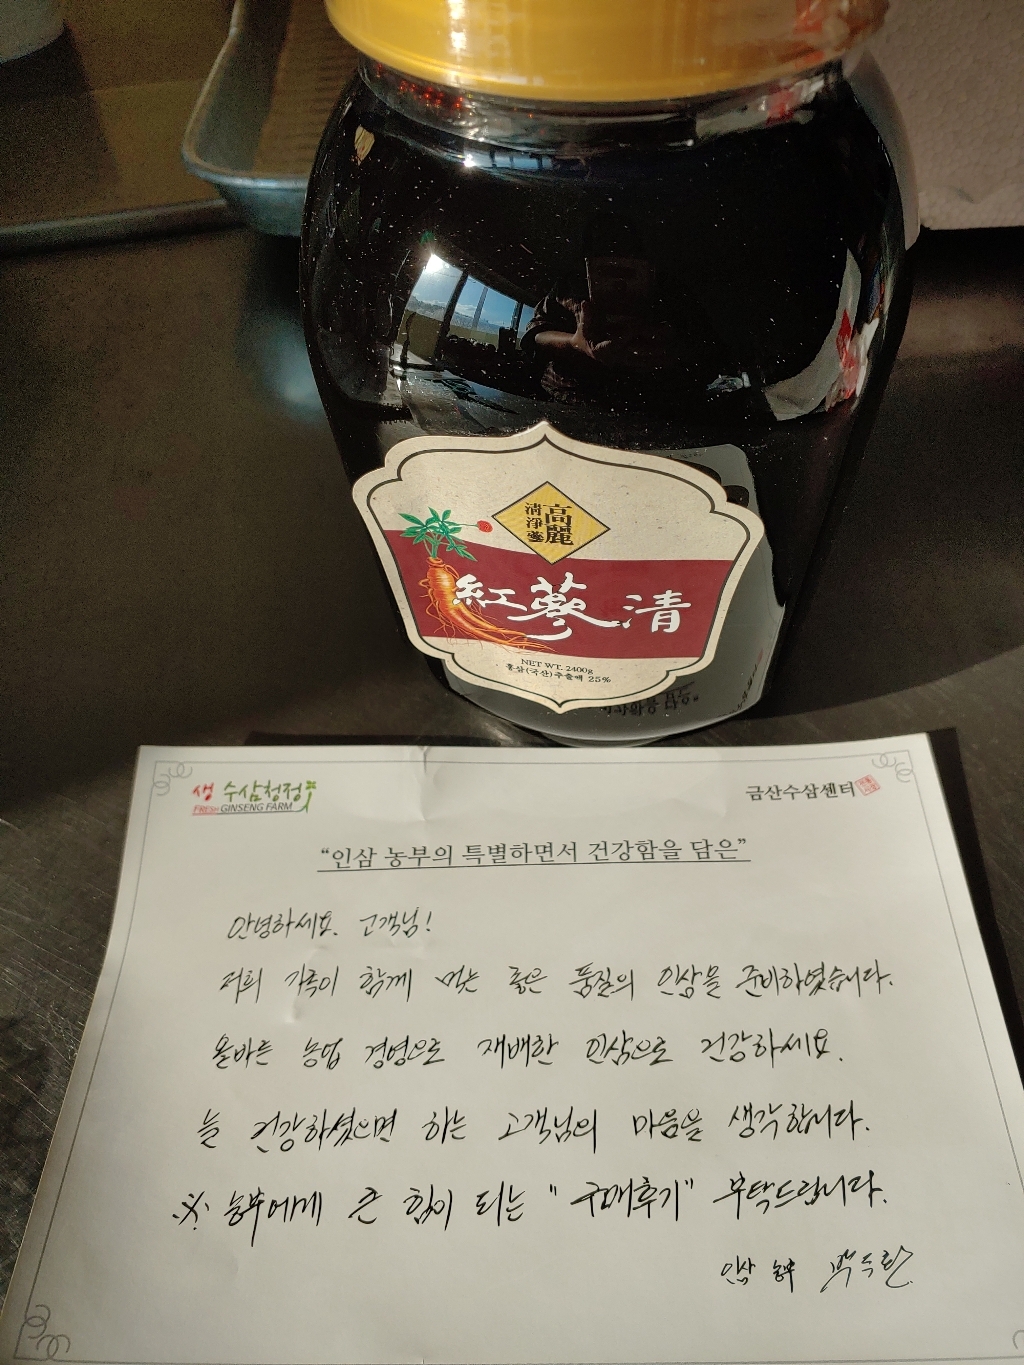 高麗
清淨蔘
紅蔘清
NET WT. 2400g
홍삼(국산)추출액 25%
생 수삼청정
FRESH GINSENG FARM
금산수삼센터
“인삼 농부의 특별하면서 건강함을 담은”
안녕하세요. 고객님!
저희 가족이 함께 먹는 좋은 품질의 인삼을 준비하였습니다.
올바른 농업 경영으로 재배한 인삼으로 건강하세요.
늘 건강하셨으면 하는 고객님의 마음을 생각합니다.
※ 농부에게 큰 힘이 되는 "구매후기" 부탁드립니다.
인삼 농부